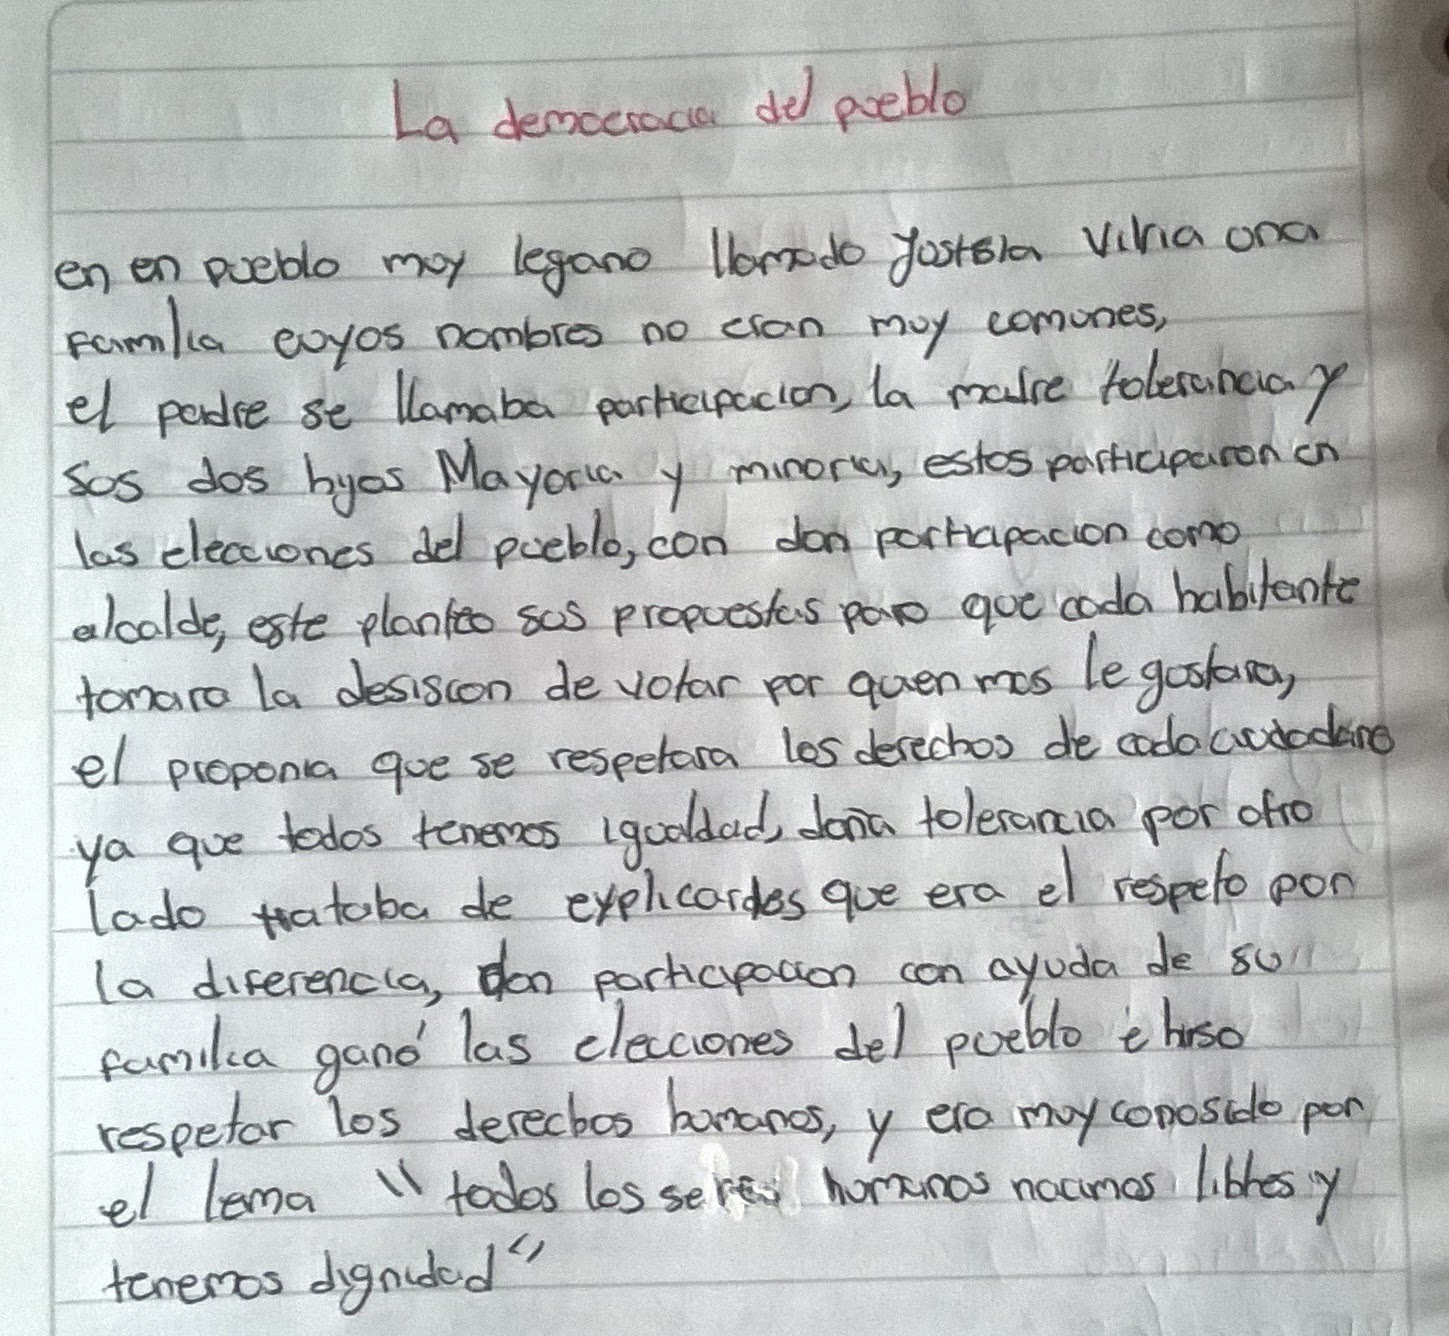 La democracia del pueblo
en un pueblo muy legano llamado Yostola Vivia una
familia cuyos nombres no eran muy comunes,
el padre se llamaba participacion, la madre tolerancia y
sus dos hijos Mayoria y minoria, estos participaron en
las elecciones del pueblo, con don participacion como
alcalde, este planteo sus propuestas para que cada habitante
tomara la desision de votar por quien mas le gustara,
el proponia que se respetara los derechos de cada ciudadano
ya que todos tenemos igualdad, doña tolerancia por otro
lado trataba de explicarles que era el respeto por
la diferencia, don participacion con ayuda de su
familia ganó las elecciones del pueblo e hiso
respetar los derechos humanos, y era muy conosido por
el lema " todos los seres humanos nacimos libres y
tenemos dignidad"